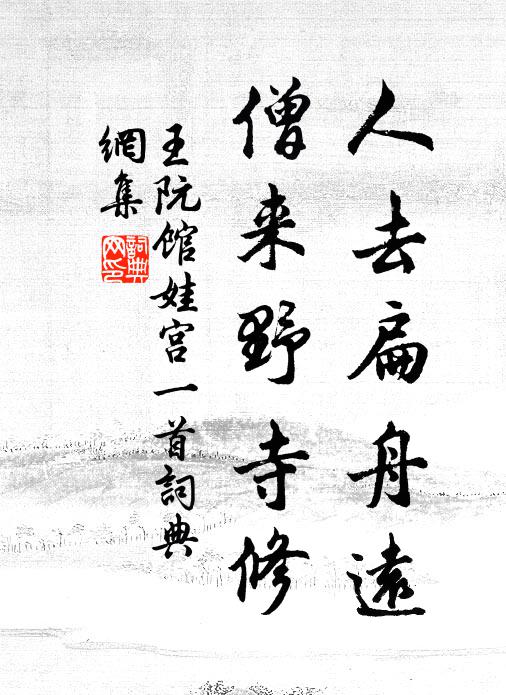 人去扁舟遠
僧来野寺修
王阮館娃宮一首詞典
網集
詞典
网印